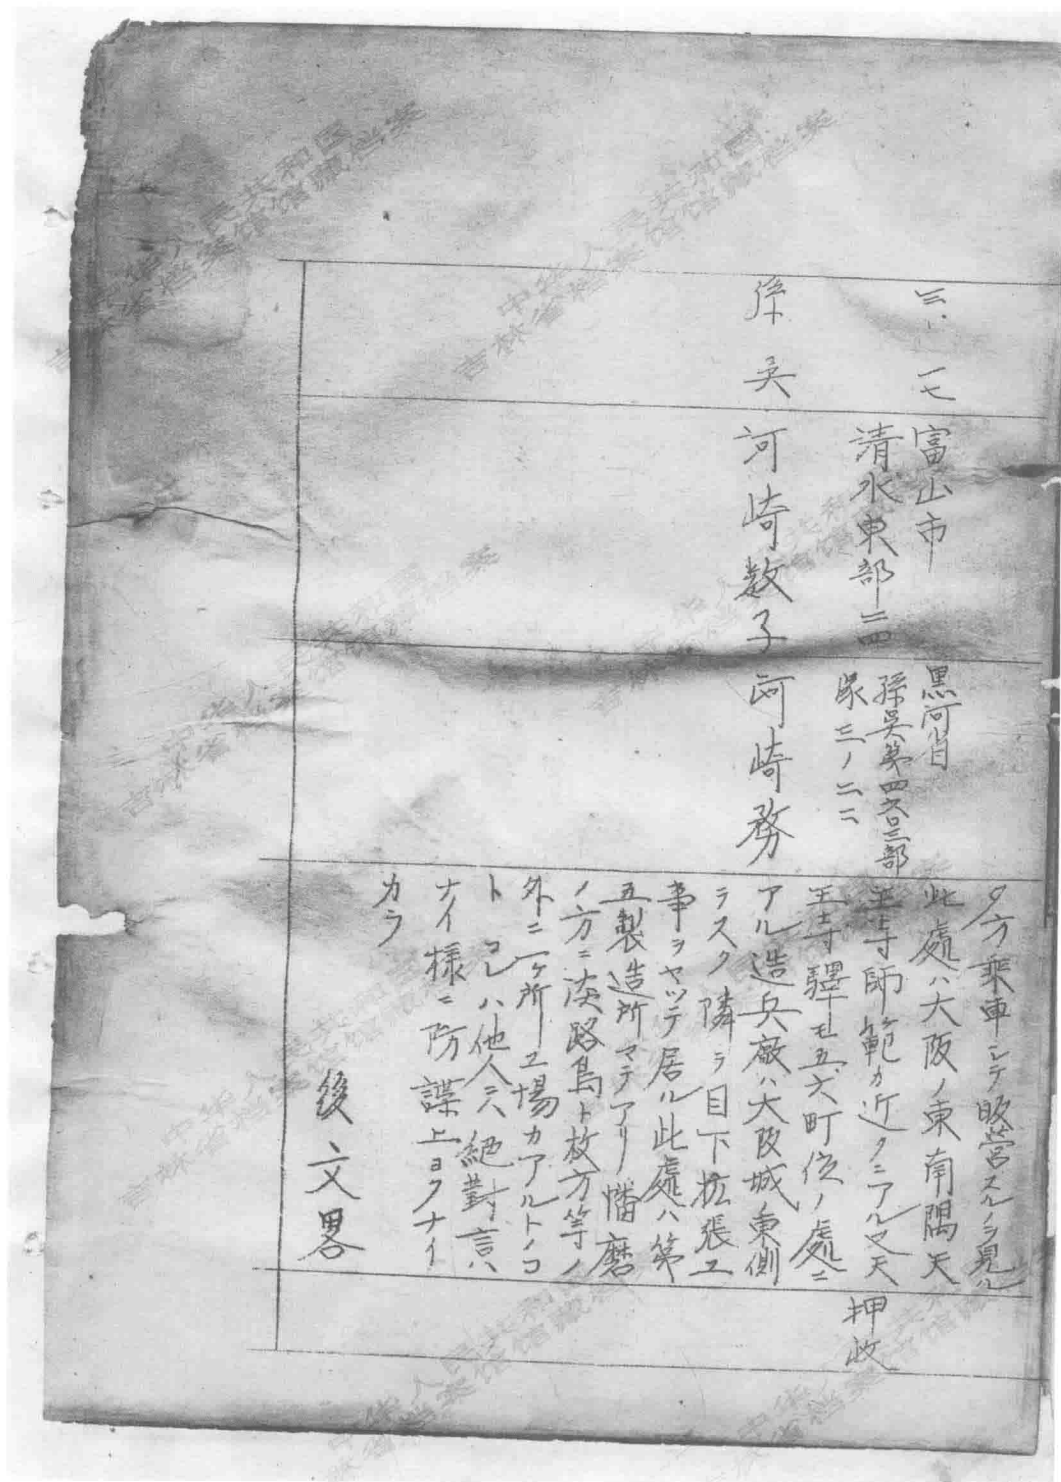 三、一七
孫呉
富山市
清水東部二四
河崎数子
黒河省
孫呉第四六三部
隊三ノ二二
河崎務
夕方乗車シテ帰営スルノヲ見ル
此處ハ大阪ノ東南隅天
王寺師範カ近クニアル又天
王寺驛モ五、六町位ノ處ニ
アル造兵廠ハ大阪城ノ東側
ラスク隣ヲ目下拡張工
事ヲヤッテ居ル此處ハ第
五製造所マテアリ播磨
ノ方ニ淡路島ト枚方等ノ
外ニ二ヶ所工場カアルトノコ
ト コレハ他人ニハ絶對言ハ
ナイ様ニ防諜上ヨクナイ
カラ
後文畧
押收
中华人民共和国
吉林省档案馆馆藏档案